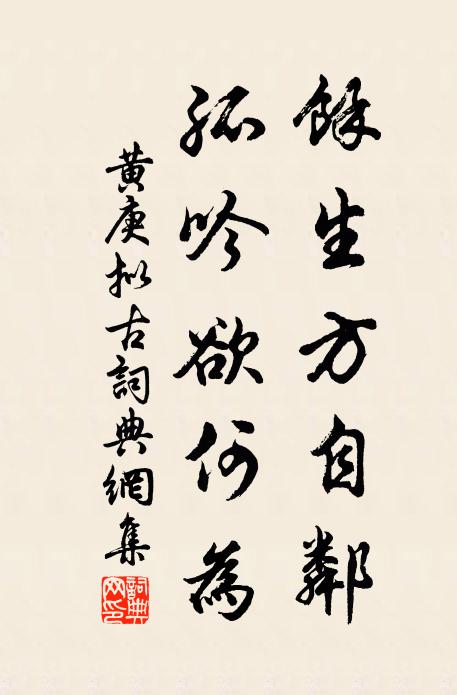 餘生方自鄰
孤吟欲何為
黄庚拟古詞典網集
詞典
网印